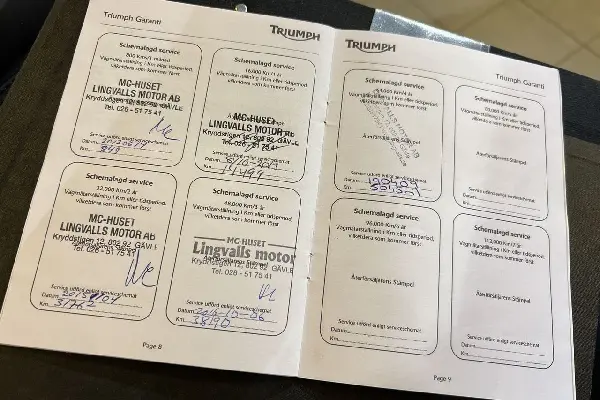 Triumph Garanti
TRIUMPH
Schemalagd service
800 Km/1 månad
Vägmätarställning i Km eller tidsperiod,
vilketdera som kommer först
MC-HUSET
LINGVALLS MOTOR AB
Kryddstigen 12, 802 92 GÄVLE
Tel. 026 - 51 75 41
Service utförd enligt serviceschemat
Datum
Km 849
Schemalagd service
16,000 Km/1 år
Vägmätarställning i Km eller tidsperiod,
vilketdera som kommer först
MC-HUSET
LINGVALLS MOTOR AB
Kryddstigen 12, 802 92 GÄVLE
Tel. 026 - 51 75 41
Service utförd enligt serviceschemat
Datum
Km
Schemalagd service
32,000 Km/2 år
Vägmätarställning i Km eller tidsperiod,
vilketdera som kommer först
MC-HUSET
LINGVALLS MOTOR AB
Kryddstigen 12, 802 92 GÄVLE
Tel. 026 - 51 75 41
Service utförd enligt serviceschemat
Datum
Km
Schemalagd service
48,000 Km/3 år
Vägmätarställning i Km eller tidsperiod,
vilketdera som kommer först
MC HUSET
Lingvalls motor
Kryddstigen 12, 802 92 GÄVLE
Tel. 026 - 51 75 41
Service utförd enligt serviceschemat
Datum
Km
Page 8
TRIUMPH
Triumph Garanti
Schemalagd service
Vägmätarställning i Km eller tidsperiod,
vilketdera som kommer först
Återförsäljarens Stämpel
Service utförd enligt serviceschemat
Datum
Km
Schemalagd service
Vägmätarställning i Km eller tidsperiod,
vilketdera som kommer först
Återförsäljarens Stämpel
Service utförd enligt serviceschemat
Datum
Km
Schemalagd service
96,000 Km/6 år
Vägmätarställning i Km eller tidsperiod,
vilketdera som kommer först
Återförsäljarens Stämpel
Service utförd enligt serviceschemat
Datum
Km
Schemalagd service
112,000 Km/7 år
Vägmätarställning i Km eller tidsperiod,
vilketdera som kommer först
Återförsäljarens Stämpel
Service utförd enligt serviceschemat
Datum
Km
Page 9